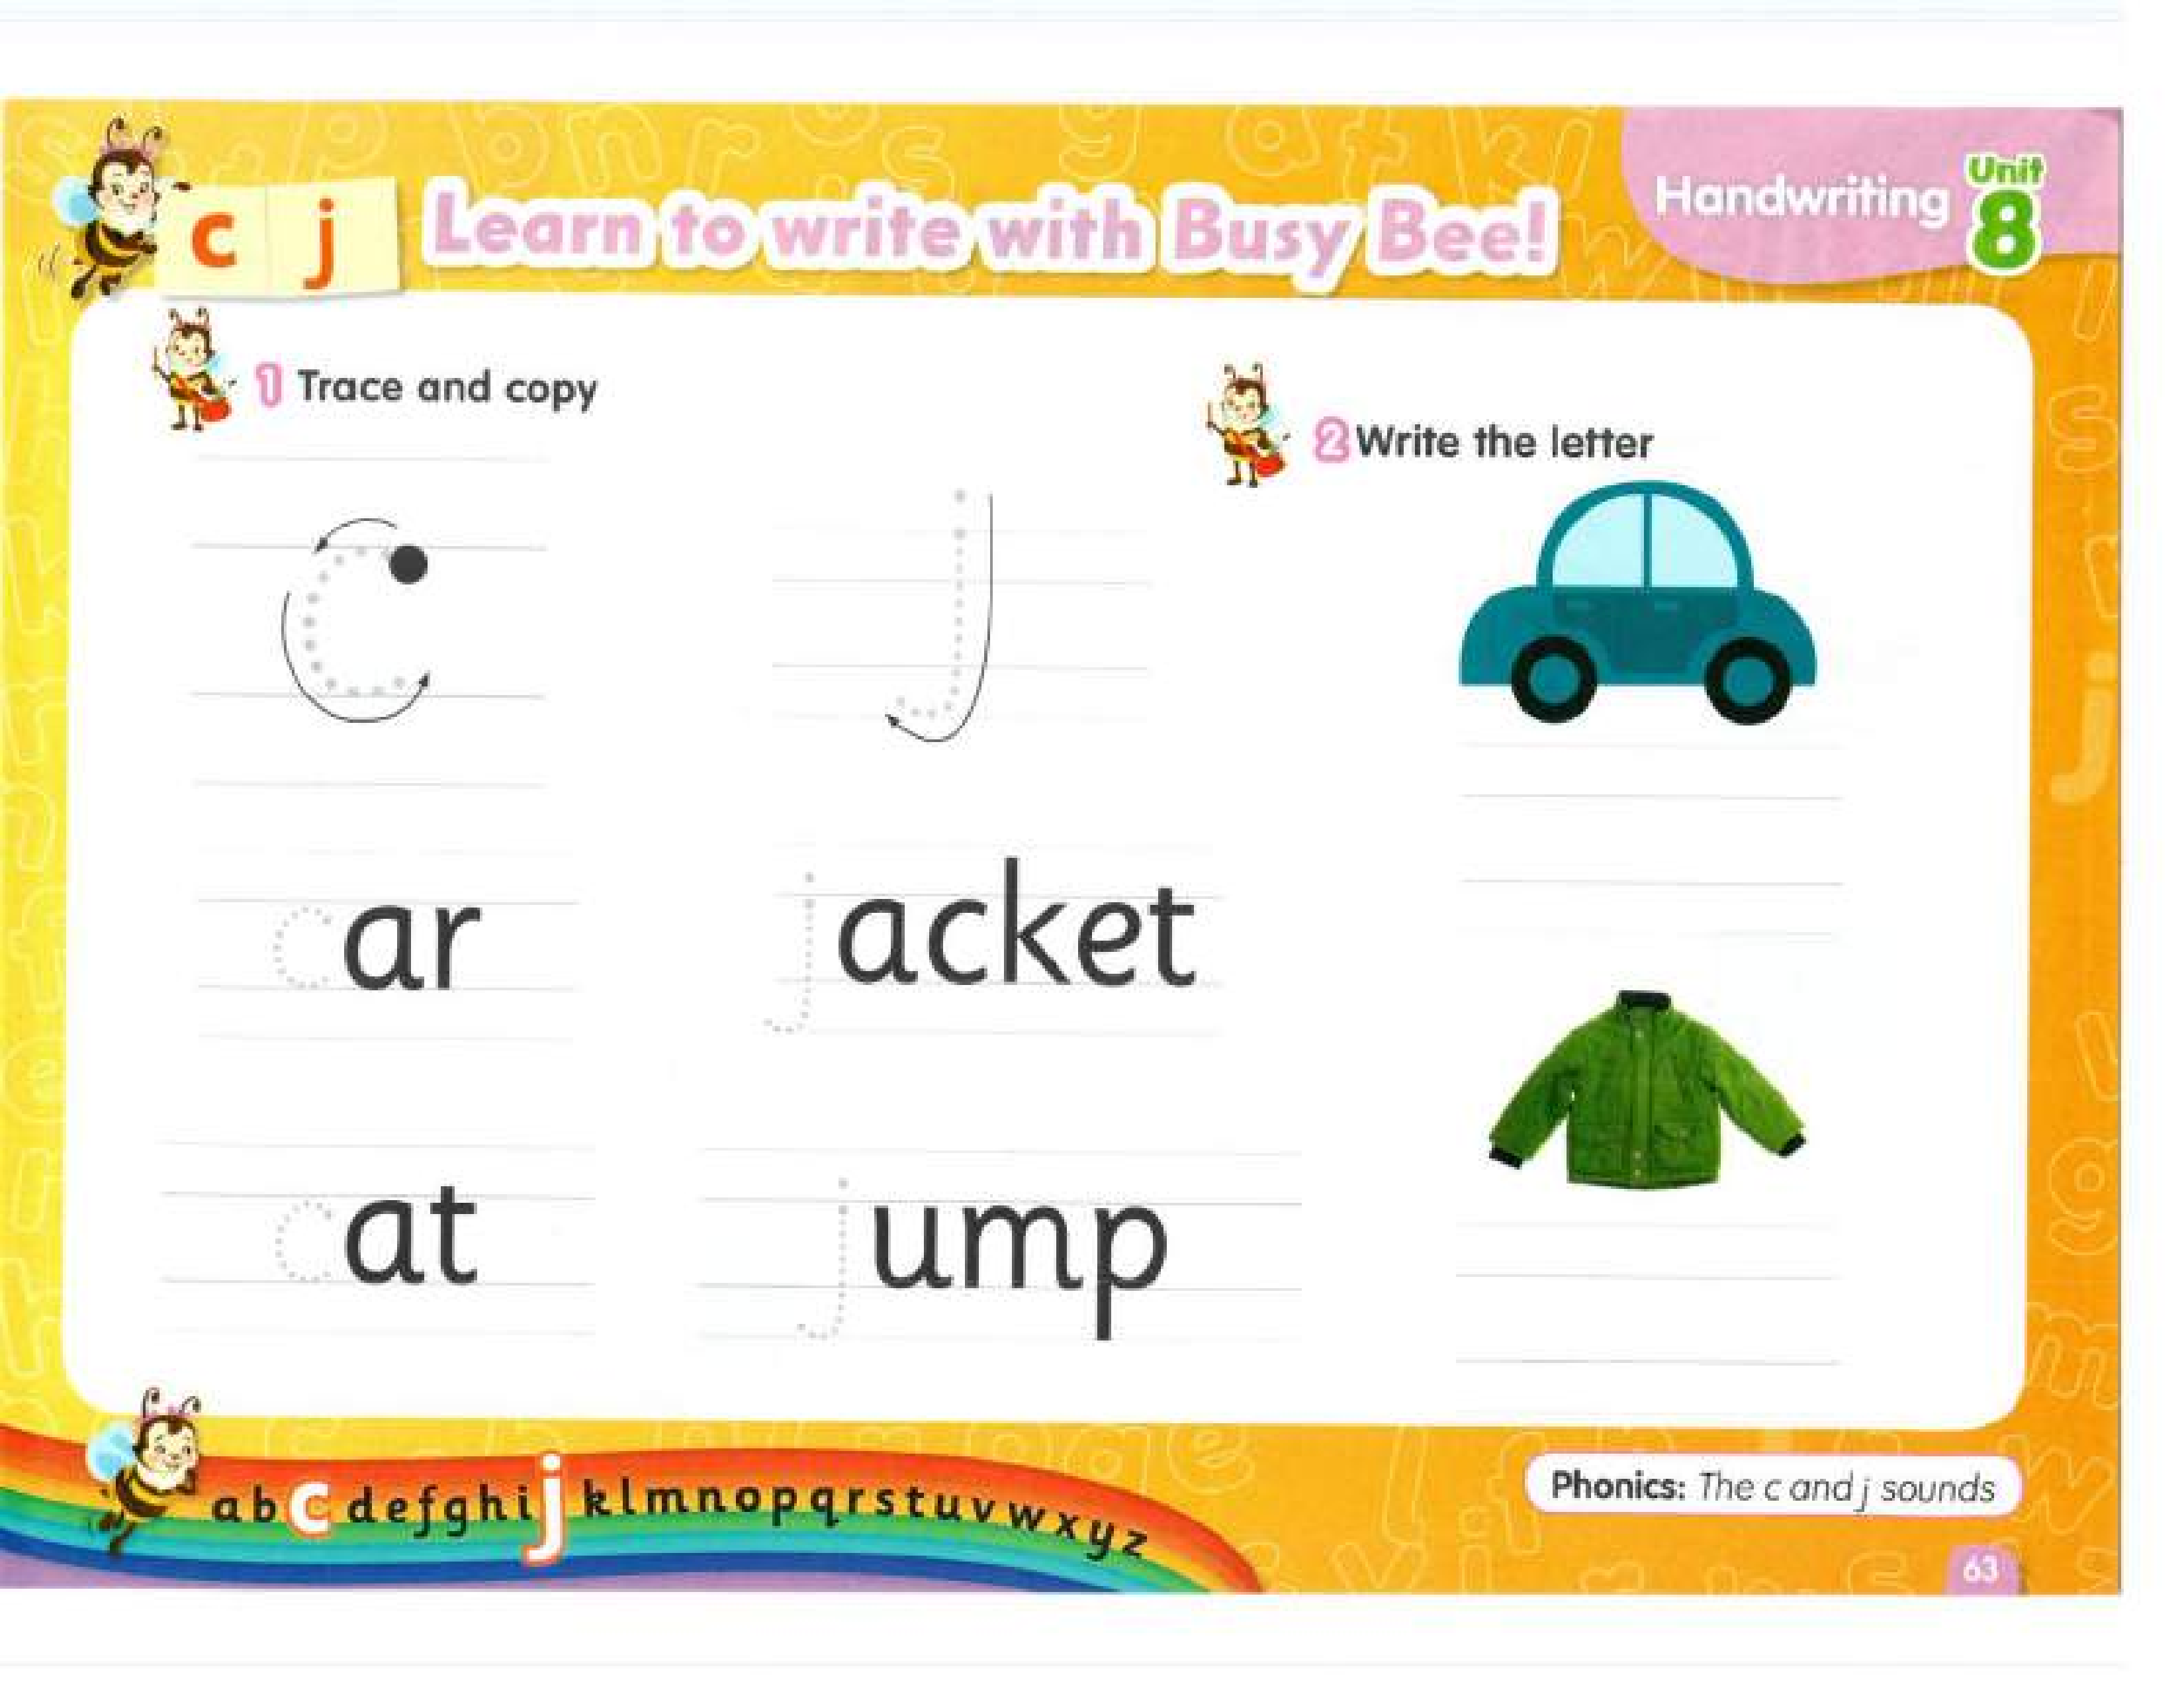 c j
Learn to write with Busy Bee!
Handwriting
Unit
8
1 Trace and copy
c
j
car
jacket
cat
jump
2 Write the letter
a b c d e f g h i j k l m n o p q r s t u v w x y z
Phonics: The c and j sounds
63